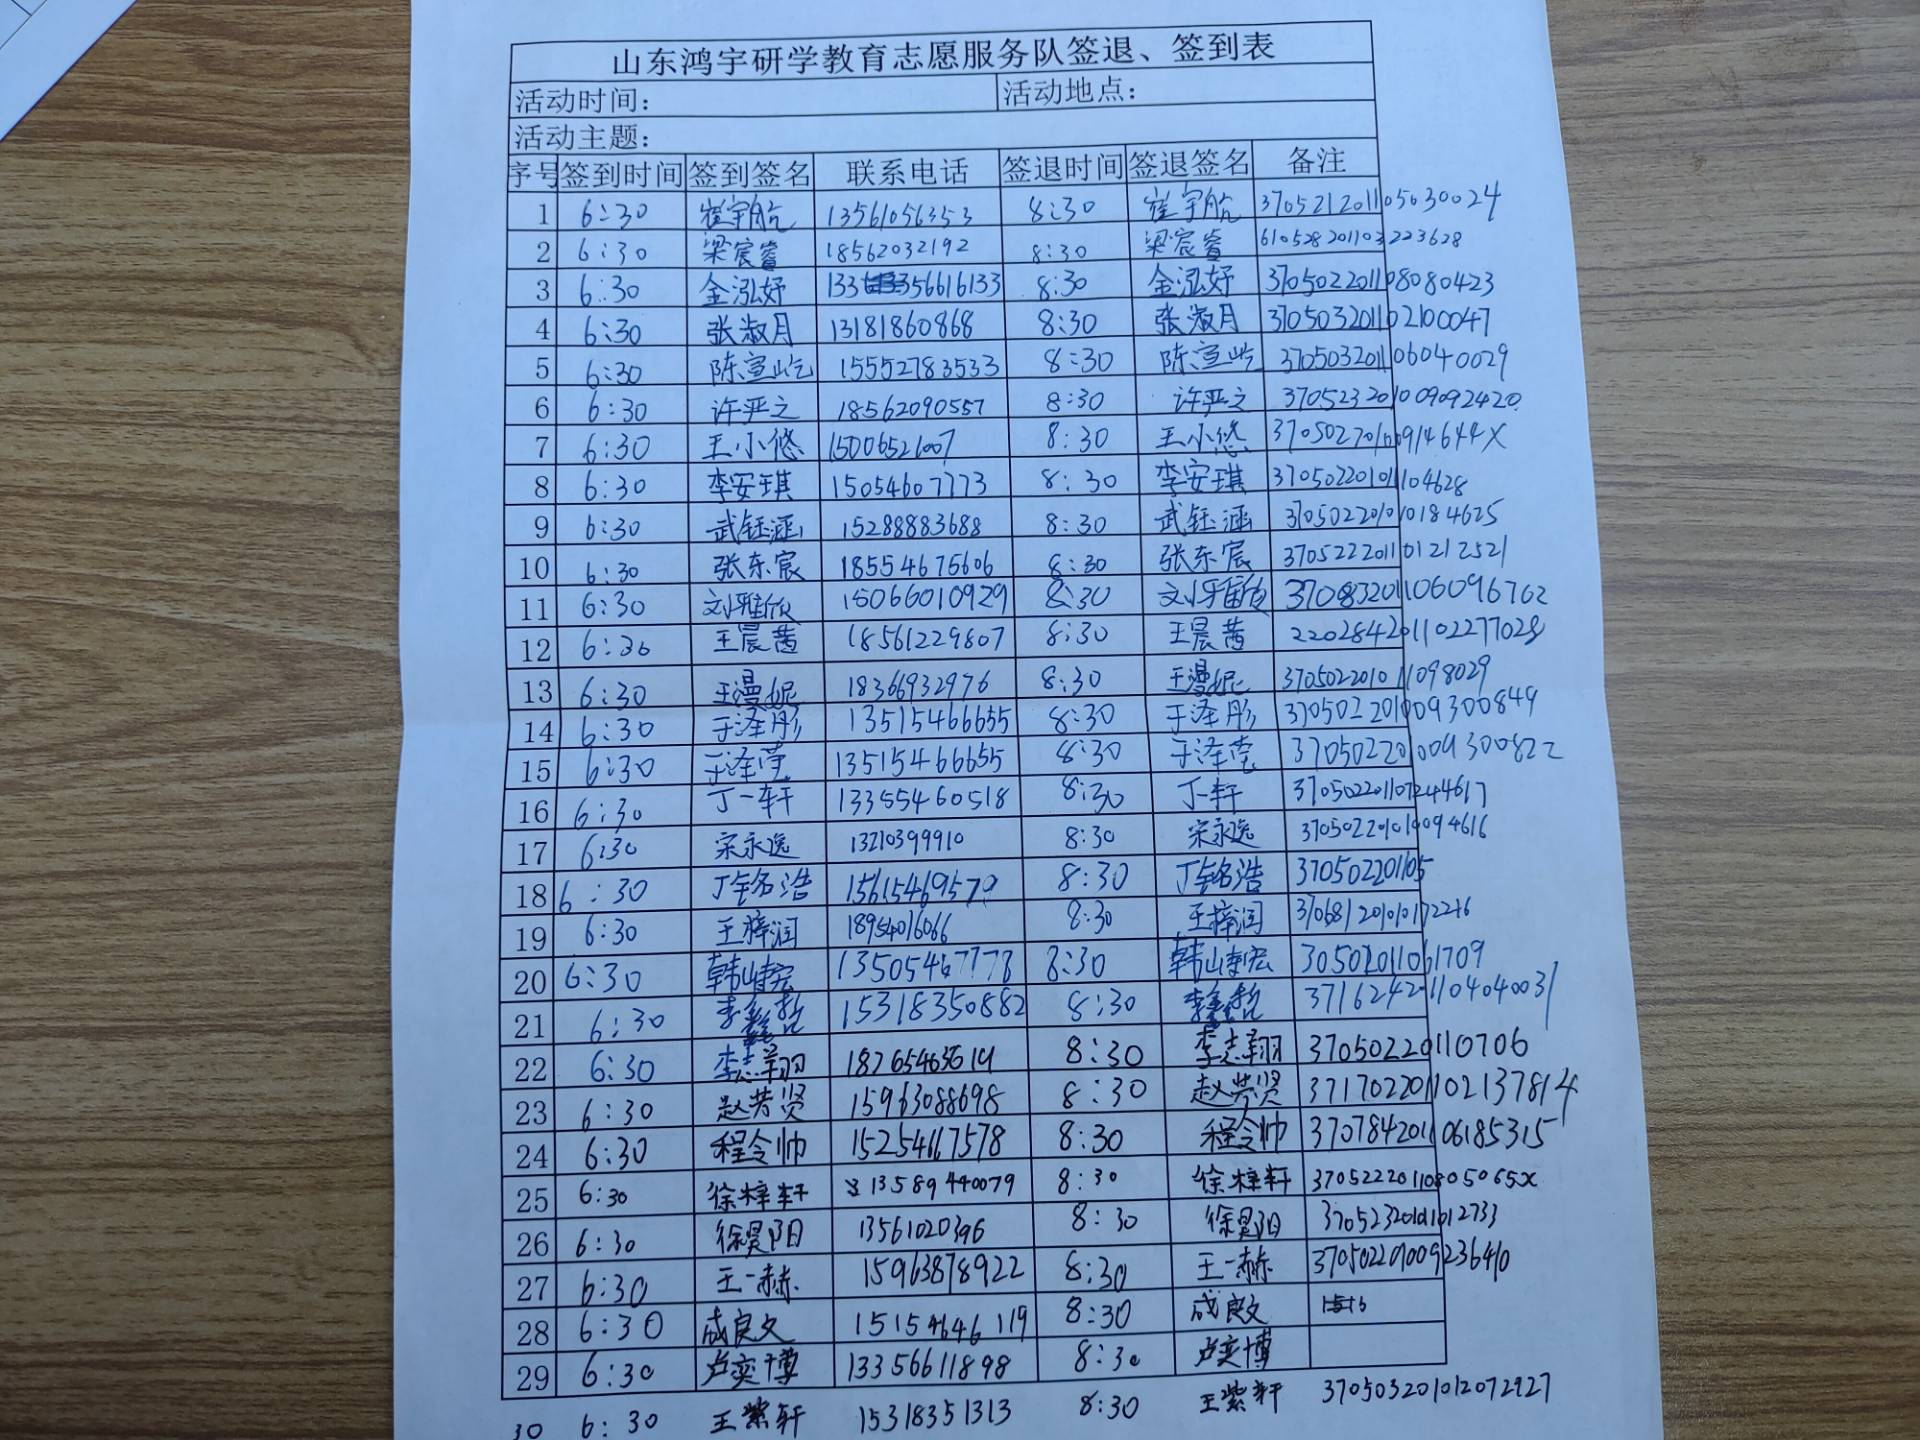 山东鸿宇研学教育志愿服务队签退、签到表
活动时间： 活动地点：
活动主题：
序号 签到时间 签到签名 联系电话 签退时间 签退签名 备注
1 6:30 崔宇航 13561056353 8:30 崔宇航 370521201105030024
2 6:30 梁宸睿 18562032192 8:30 梁宸睿 610528201103223628
3 6:30 金泓妤 8:30 金泓妤 370502201108080423
4 6:30 张淑月 13181860868 8:30 张淑月 370503201102100047
5 6:30 陈宣屹 15552783533 8:30 陈宣屹 370503201106040029
6 6:30 许严之 18562090557 8:30 许严之 370523201009092420
7 6:30 王小悠 15006521007 8:30 王小悠
8 6:30 李安琪 15054607773 8:30 李安琪 370502201011104628
9 6:30 武钰涵 15288883688 8:30 武钰涵 370502201010184625
10 6:30 张东宸 18554675606 8:30 张东宸 370522201101212521
11 6:30 刘雅欣 15066010929 8:30 刘雅欣 370832201106096762
12 6:30 王晨茜 18561229807 8:30 王晨茜 220284201102277028
13 6:30 王漫妮 18366932976 8:30 王漫妮 370502201011098029
14 6:30 于泽彤 13515466655 8:30 于泽彤 370502201009300849
15 6:30 于泽莹 13515466655 8:30 于泽莹 370502201009300822
16 6:30 丁一轩 13355460518 8:30 丁一轩 370502201107244617
17 6:30 宋永逸 13210399910 8:30 宋永逸 370502201010094616
18 6:30 丁铭浩 15615469579 8:30 丁铭浩 370502201105
19 6:30 王梓润 18954016066 8:30 王梓润
20 6:30 8:30
21 6:30 15318350882 8:30 371624201104040031
22 6:30 李志翔 8:30 李志翔 37050220110706
23 6:30 赵芳贤 15963088698 8:30 赵芳贤 371702201102137814
24 6:30 程令帅 15254667578 8:30 程令帅 370784201106185315
25 6:30 徐梓轩 13589440079 8:30 徐梓轩 37052220110805065x
26 6:30 徐昊阳 13561020396 8:30 徐昊阳
27 6:30 王一赫 15963878922 8:30 王一赫 370502201009236410
28 6:30 成良文 15154646119 8:30 成良文
29 6:30 卢奕博 13356611898 8:30 卢奕博
30 6:30 王紫轩 15318351313 8:30 王紫轩 370503201012072927